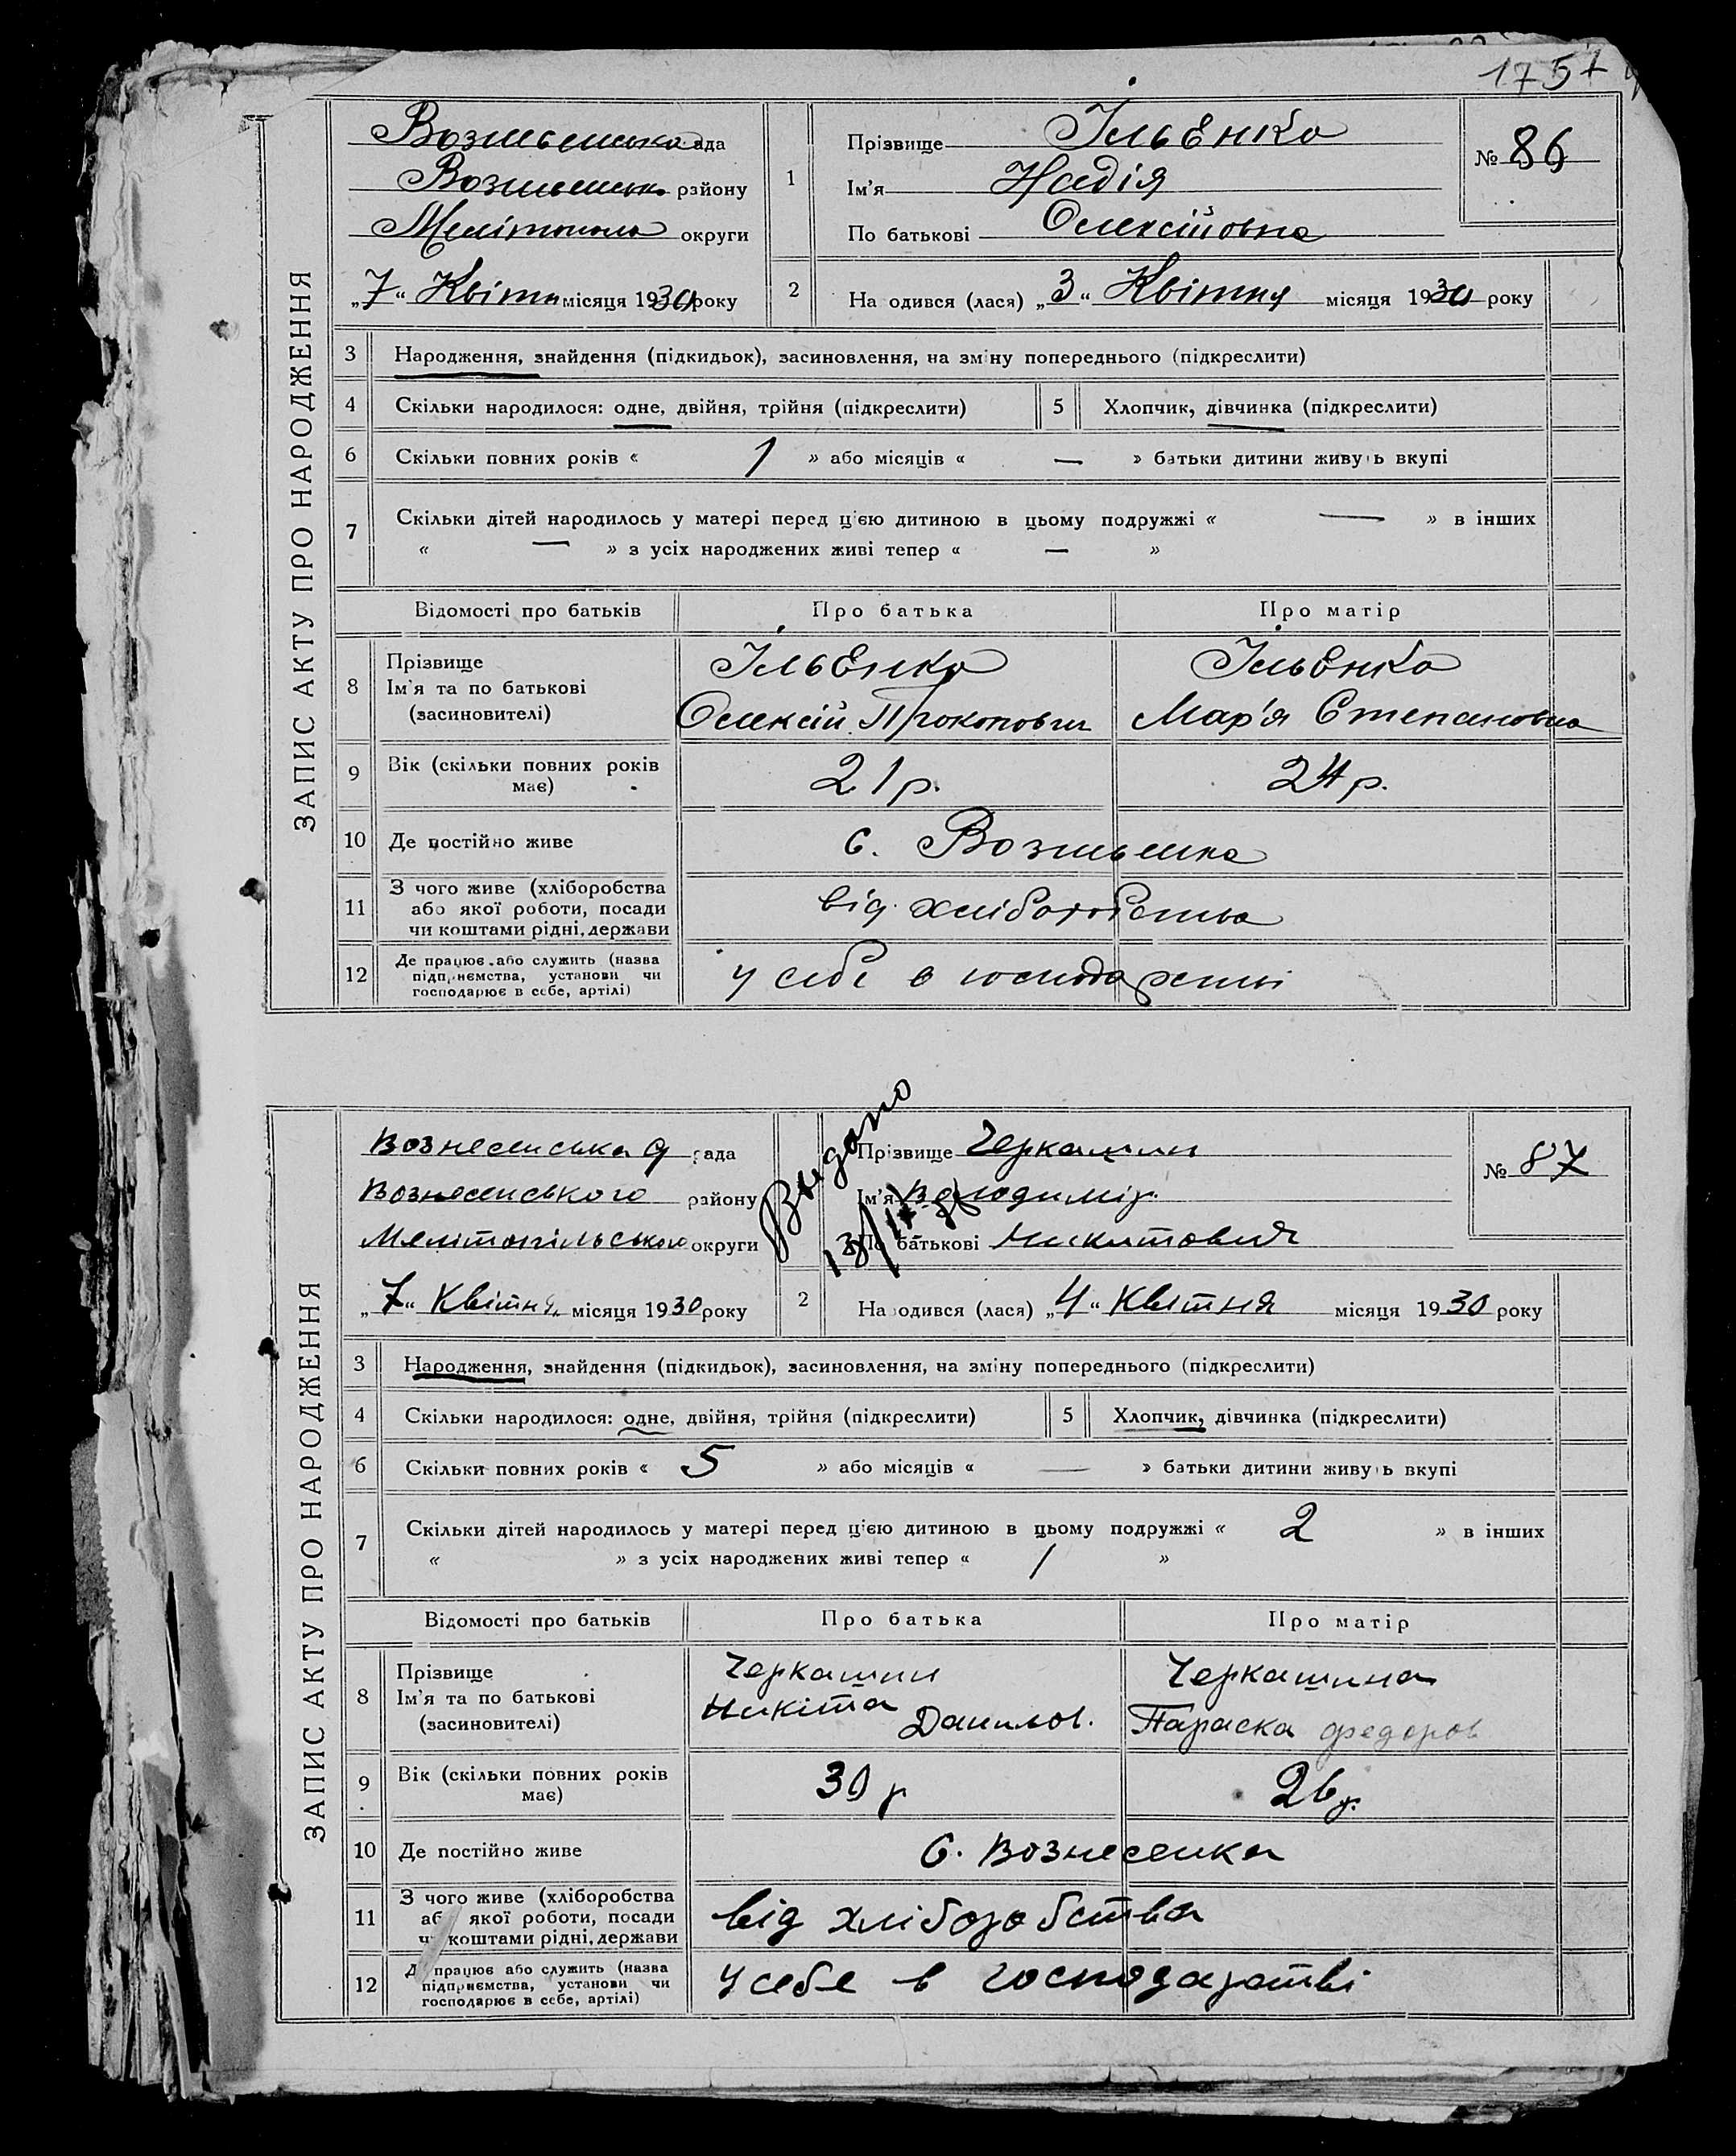 1757
ЗАПИС АКТУ ПРО НАРОДЖЕННЯ
Вознесенська рада
Вознесенськ району
Мелітополь округи
„7“ Квітн місяця 1930 року
1
Прізвище Ільєнко
Ім'я Надія
По батькові Олексійовна
№ 86
2 На одився (лася) „3“ Квітня місяця 1930 року
3 Народження, знайдення (підкидьок), засиновлення, на зміну попереднього (підкреслити)
4 Скільки народилося: одне, двійня, трійня (підкреслити) 5 Хлопчик, дівчинка (підкреслити)
6 Скільки повних років « 1 » або місяців « — » батьки дитини живуь вкупі
7 Скільки дітей народилось у матері перед цією дитиною в цьому подружжі « — » в інших
« — » з усіх народжених живі тепер « — »
Відомості про батьків Про батька Про матір
8 Прізвище Ільєнко Ільєнко
Ім'я та по батькові
(засиновителі) Олексій Прокопович Мар'я Степановна
9 Вік (скільки повних років має) 21 р. 24 р.
10 Де постійно живе с. Вознесенка
11 З чого живе (хліборобства
або якої роботи, посади від хліборобства
чи коштами рідні, держави
12 Де працює або служить (назва
підприємства, установи чи у себе в господарстві
господарює в себе, артілі)
Видано
ЗАПИС АКТУ ПРО НАРОДЖЕННЯ
Вознесенська рада
Вознесенського району
Мелітопільського округи
„7“ Квітня місяця 1930 року
Прізвище Черкашин
Ім'я Володимір
По батькові Никитович
№ 87
2 На одився (лася) „4“ Квітня місяця 1930 року
3 Народження, знайдення (підкидьок), засиновлення, на зміну попереднього (підкреслити)
4 Скільки народилося: одне, двійня, трійня (підкреслити) 5 Хлопчик, дівчинка (підкреслити)
6 Скільки повних років « 5 » або місяців « — » батьки дитини живуь вкупі
7 Скільки дітей народилось у матері перед цією дитиною в цьому подружжі « 2 » в інших
« » з усіх народжених живі тепер « 1 »
Відомості про батьків Про батька Про матір
8 Прізвище Черкашин Черкашина
Ім'я та по батькові Никіта
(засиновителі) Данилов. Параска Федоров
9 Вік (скільки повних років має) 30 р 26 р.
10 Де постійно живе С. Вознесенка
11 З чого живе (хліборобства
або якої роботи, посади від хліборобства
чи коштами рідні, держави
12 Де працює або служить (назва
підприємства, установи чи у себе в господарстві
господарює в себе, артілі)